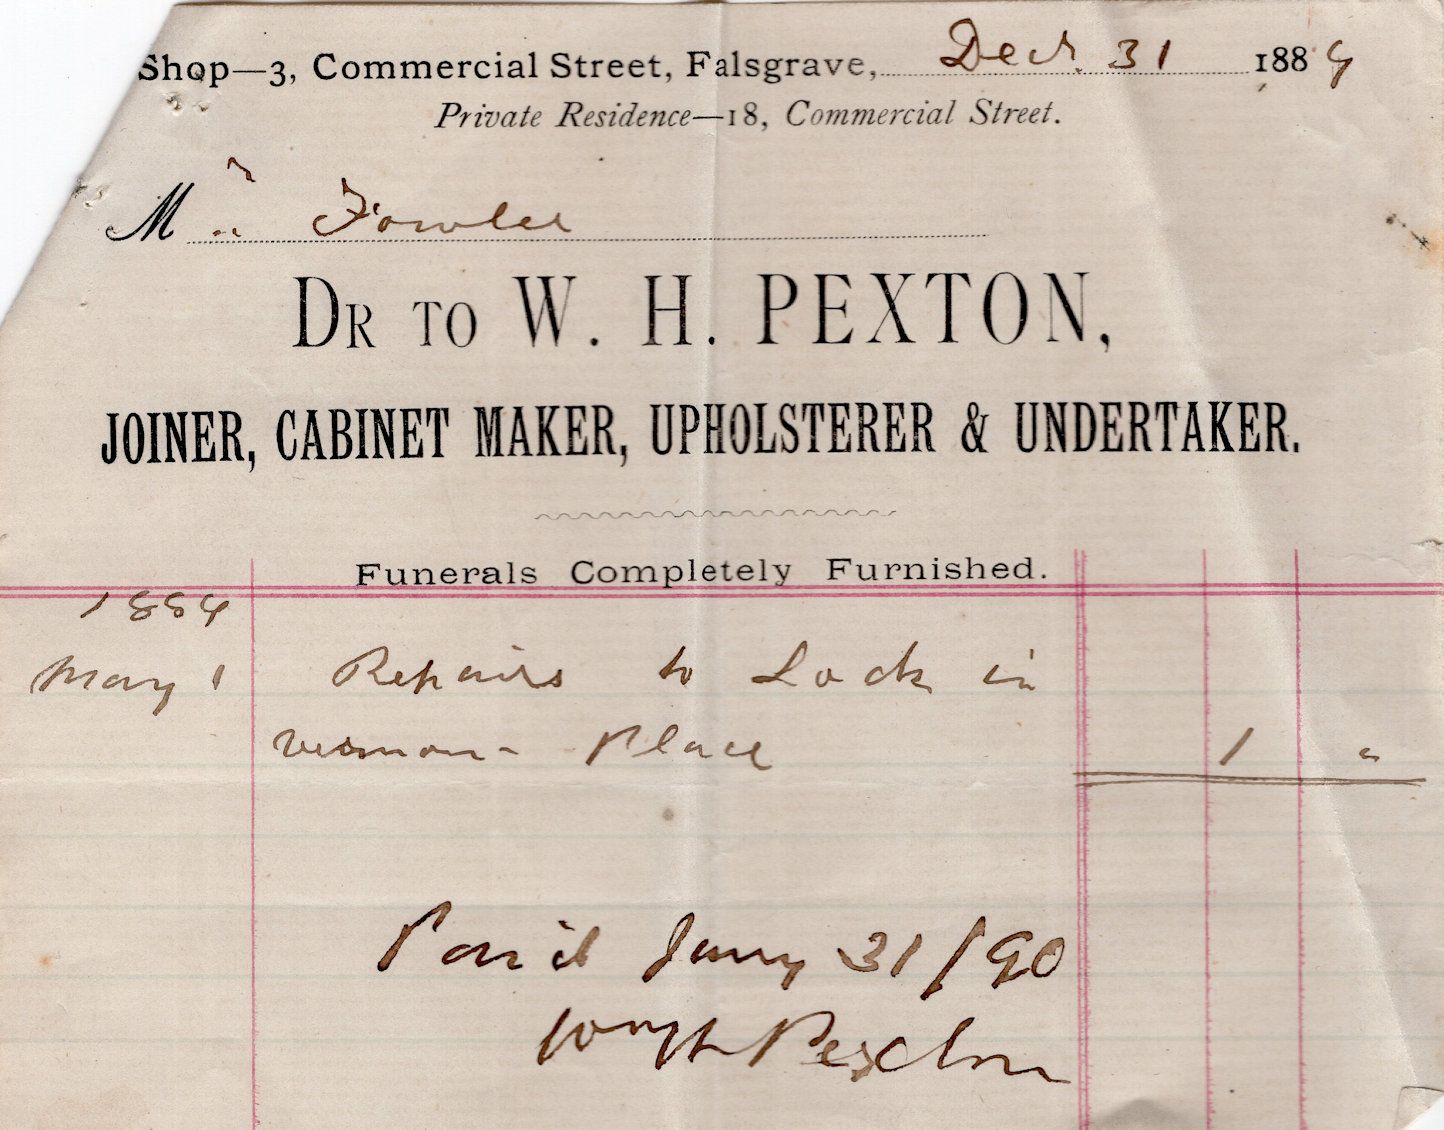 Shop—3, Commercial Street, Falsgrave, Decr. 31 1889
Private Residence—18, Commercial Street.
Mr Fowler
DR TO W. H. PEXTON,
JOINER, CABINET MAKER, UPHOLSTERER & UNDERTAKER.
Funerals Completely Furnished.
1889
May 1 Repairs to Lock in
Vernon Place 1 "
Paid Jany 31/90
Wm H Pexton